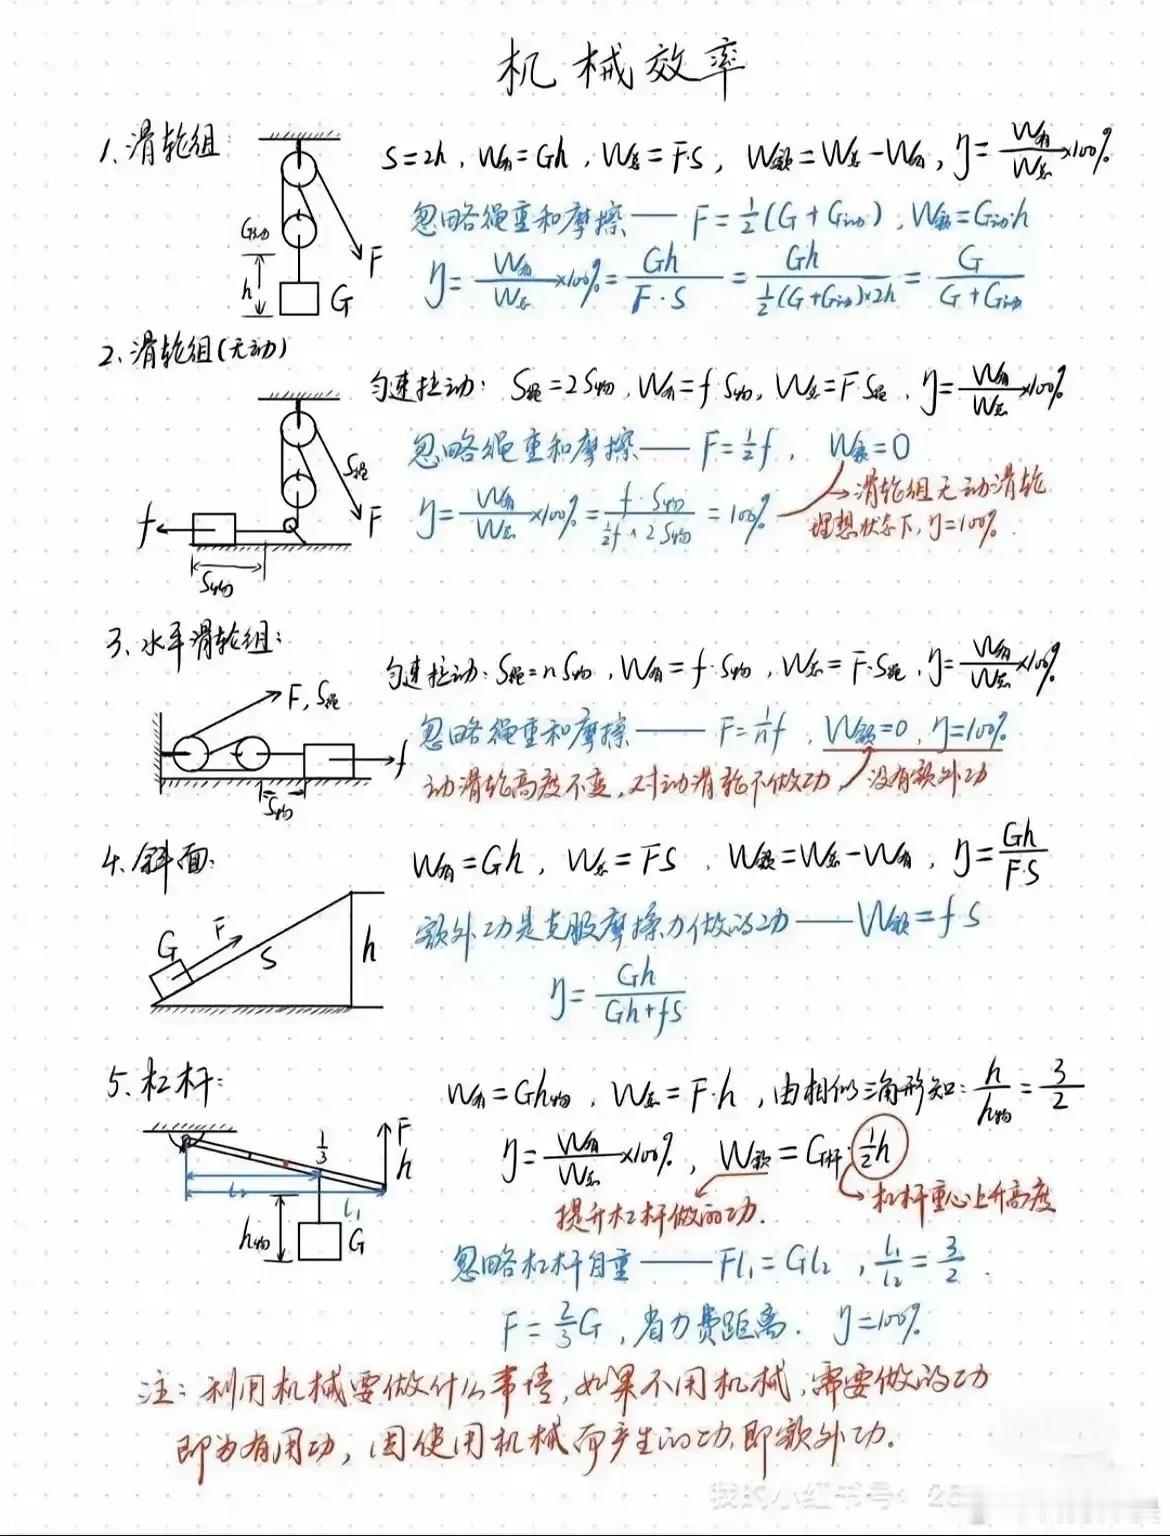 机械效率
1、滑轮组:
S=2h, W有=Gh, W总=F·S, W额=W总-W有, η=W有/W总×100%
忽略绳重和摩擦——F=1/2(G+G动), W额=G动·h
η=W有/W总×100%=Gh/F·S=Gh/1/2(G+G动)×2h=G/G+G动
G动
h
G
F
2、滑轮组(无动)
匀速拉动: S绳=2S物, W有=f·S物, W总=F·S绳, η=W有/W总×100%
忽略绳重和摩擦——F=1/2f, W额=0
η=W有/W总×100%=f·S物/1/2f×2S物=100%
→滑轮组无动滑轮
理想状态下, η=100%.
S绳
F
f
S物
3、水平滑轮组:
匀速拉动: S绳=nS物, W有=f·S物, W总=F·S绳, η=W有/W总×100%
忽略绳重和摩擦——F=1/nf, W额=0, η=100%
动滑轮高度不变, 对动滑轮不做功, 没有额外功
F, S绳
f
S物
4、斜面:
W有=Gh, W总=FS, W额=W总-W有, η=Gh/F·S
额外功是克服摩擦力做的功——W额=fS
η=Gh/Gh+fS
G
F
S
h
5、杠杆:
W有=Gh物, W总=F·h, 由相似三角形知: h/h物=3/2
η=W有/W总×100%, W额=G杆·1/2h
提升杠杆做的功.
杠杆重心上升高度
忽略杠杆自重——Fl1=Gl2, l1/l2=3/2.
F=2/3G, 省力费距离. η=100%.
1/3
F
h
l2
l1
h物
G
注: 利用机械要做什么事情, 如果不用机械, 需要做的功
即为有用功, 因使用机械而产生的功, 即额外功.
我的小红书号: 26